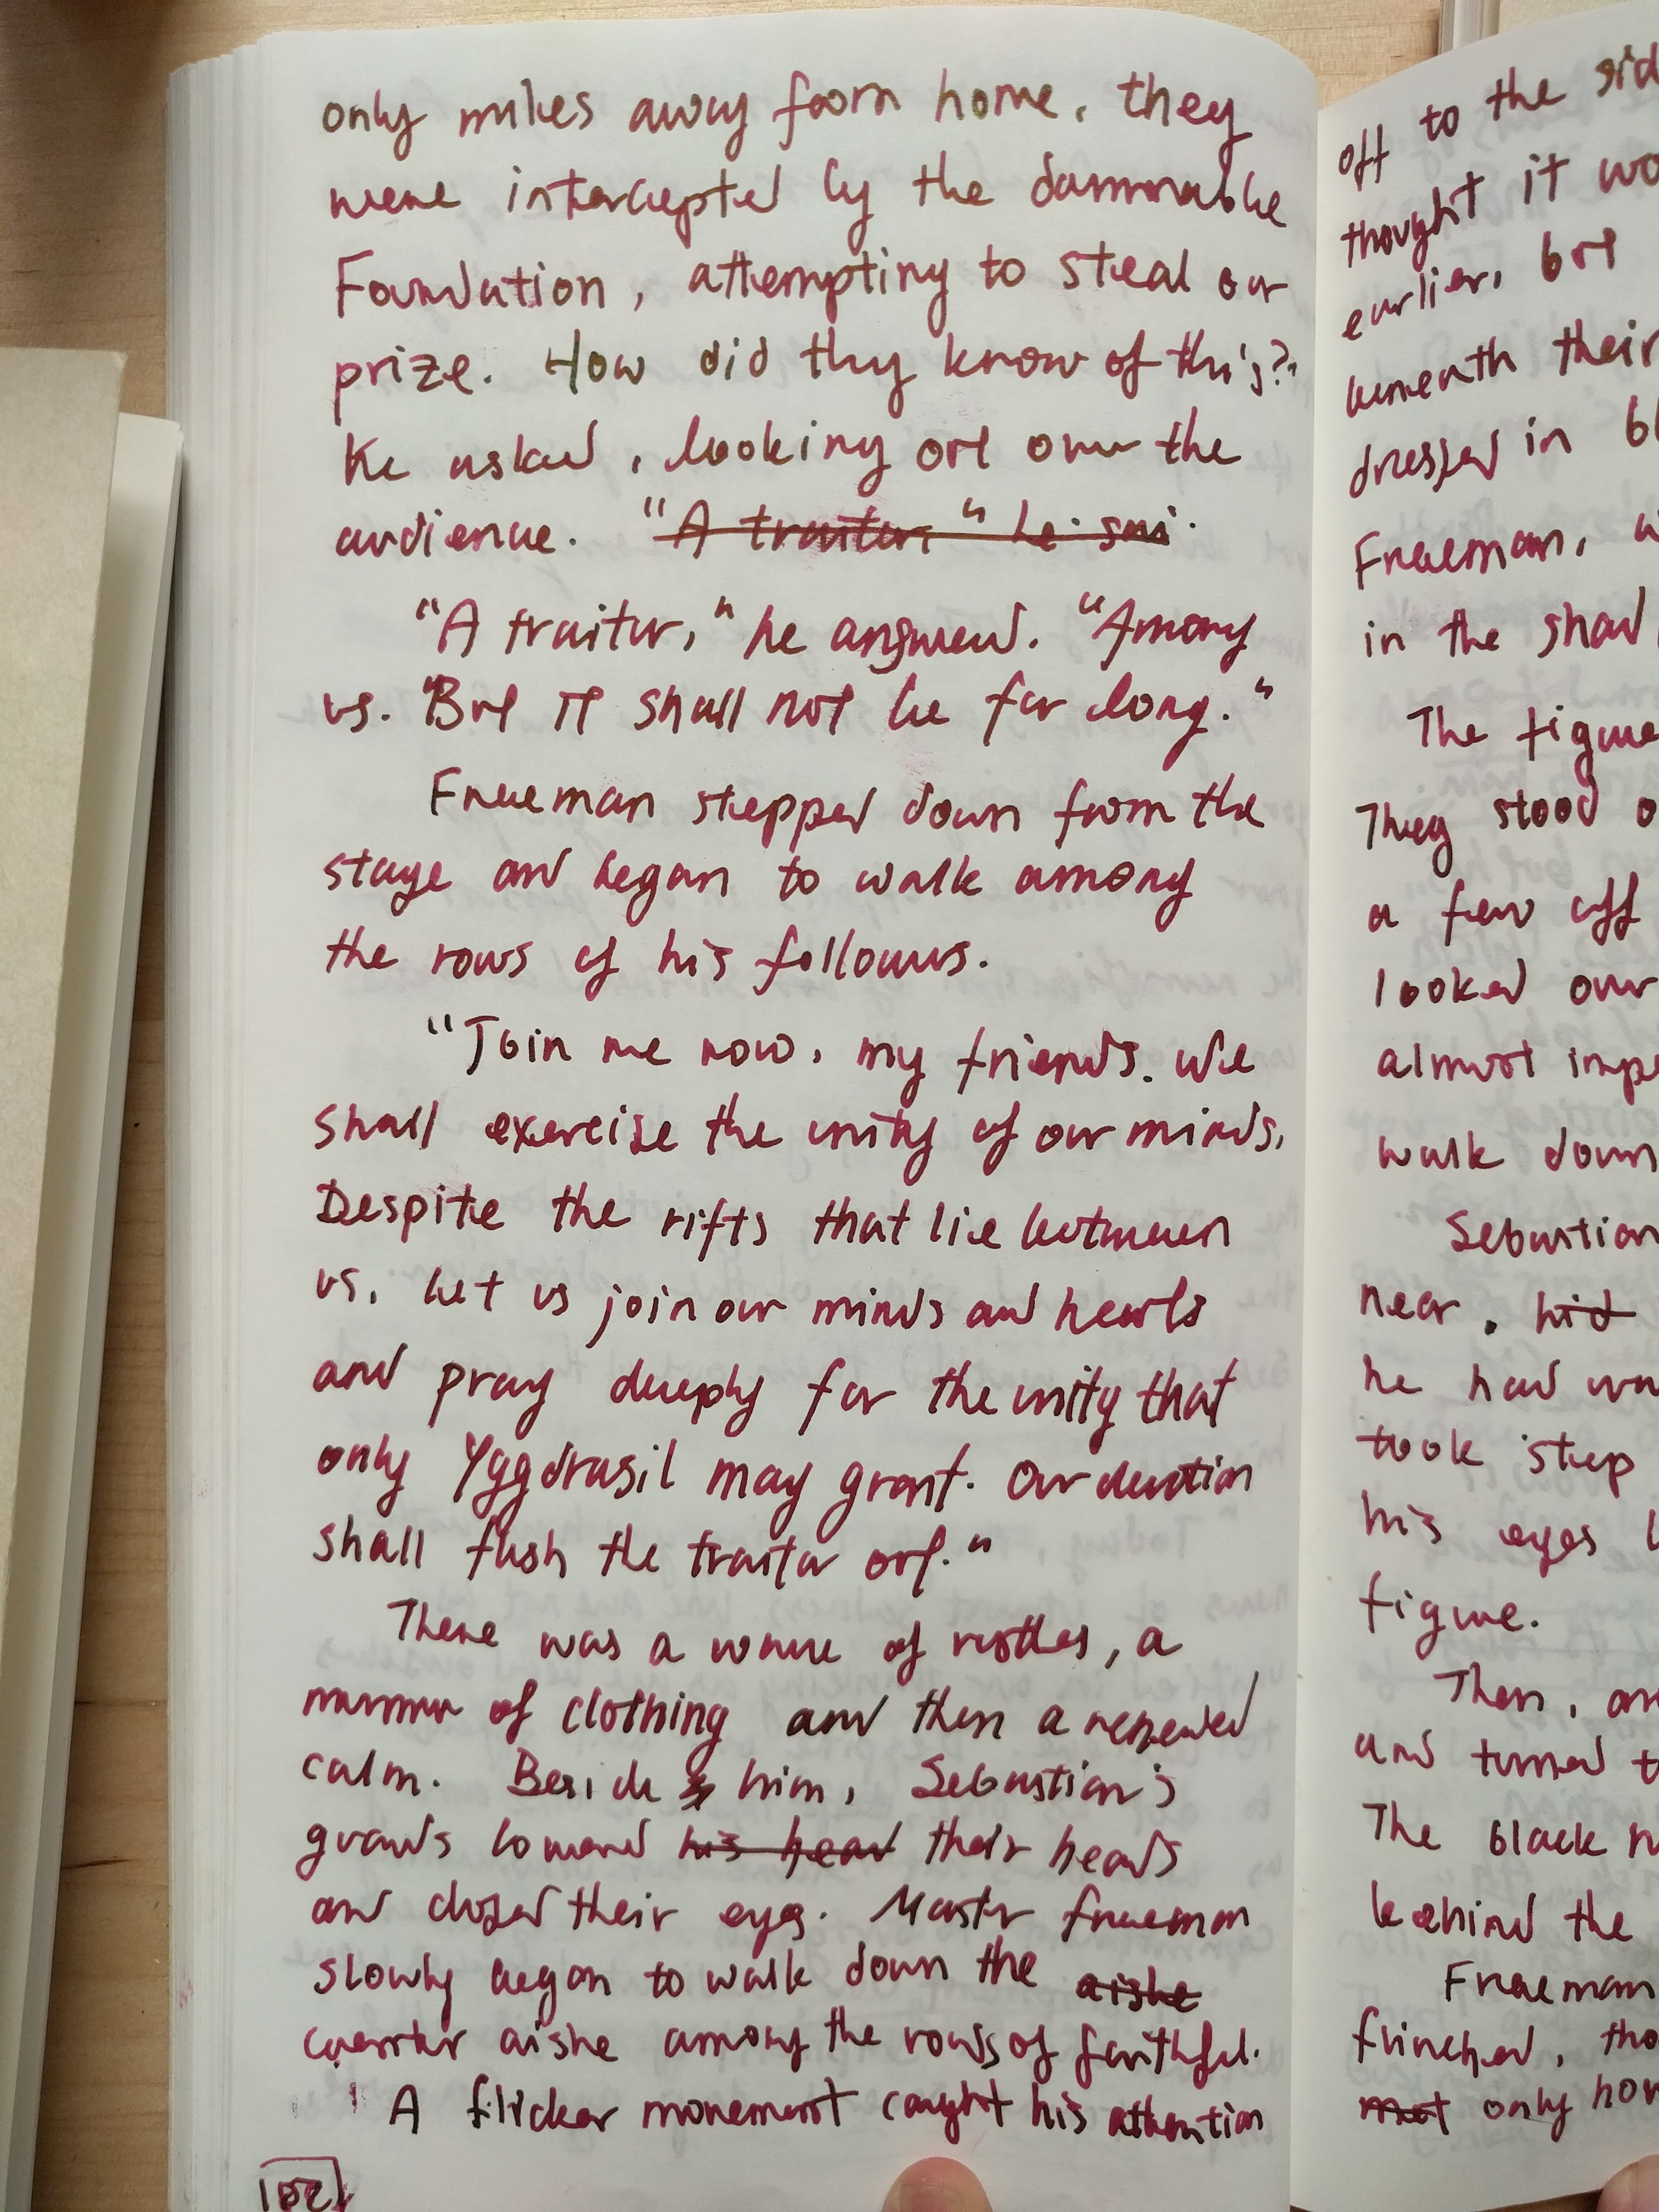 only miles away from home, they
were intercepted by the damnable
Foundation, attempting to steal our
prize. How did they know of this?"
he asked, looking out over the
audience. "A traitor," he sai
"A traitor," he answered. "Among
us. "But it shall not be for long."
Freeman stepped down from the
stage and began to walk among
the rows of his followers.
"Join me now, my friends. We
shall exercise the unity of our minds.
Despite the rifts that lie between
us, let us join our minds and hearts
and pray deeply for the unity that
only Yggdrasil may grant. Our devotion
shall flush the traitor out."
There was a wave of rustles, a
murmur of clothing and then a renewed
calm. Beside him, Sebastian's
guards lowered his head their heads
and closed their eyes. Master Freeman
slowly began to walk down the aisle
center aisle among the rows of faithful.
A flicker movement caught his attention
102
off to the sid
thought it wo
earlier, but
beneath their
dressed in bl
Freeman, w
in the shad
The figure
They stood o
a few off
looked over
almost impe
walk down
Sebastian
near, hid
he had wa
took step
his eyes
figure.
Then, an
and turned t
The black r
behind the
Freeman
flinched, tho
not only how